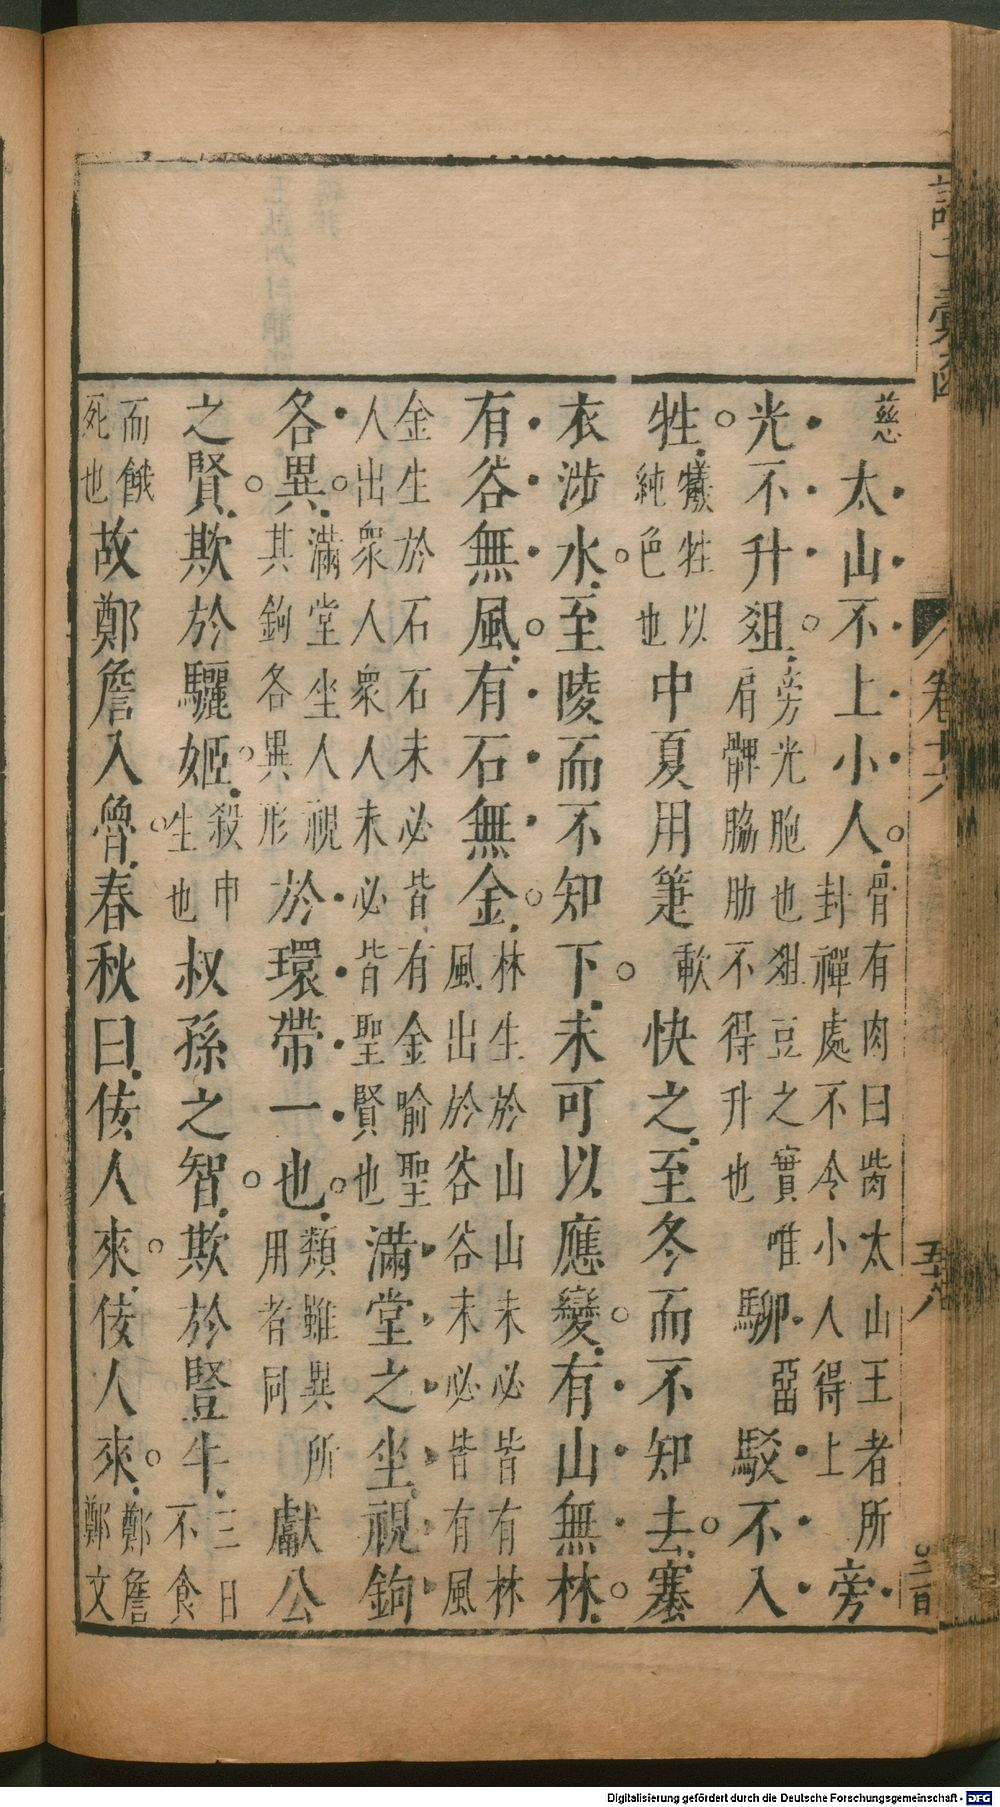 諸子彙函 卷十六 五十八 三百
慈太山不上小人。骨有肉曰胔太山王者所封禪處不令小人得上旁
光不升俎。旁光胞也俎豆之實唯肩髀脇肋不得升也駠駁不入
牲。犧牲以純色也中夏用箑快之至冬而不知去。塞
衣涉水。至陵而不知下。未可以應變。有山無林。
有谷無風。有石無金。林生於山山未必皆有林風出於谷谷未必皆有風
金生於石石未必皆有金喻聖人出眾人眾人未必皆聖賢也滿堂之坐視鉤
各異。滿堂坐人視其鉤各異形於環帶一也。類雖異所用者同獻公
之賢。欺於驪姬。殺申生也叔孫之智。欺於豎牛三日不食
而餓死也故鄭詹入魯。春秋曰佞人來。佞人來。鄭詹鄭文
Digitalisierung gefördert durch die Deutsche Forschungsgemeinschaft - DFG